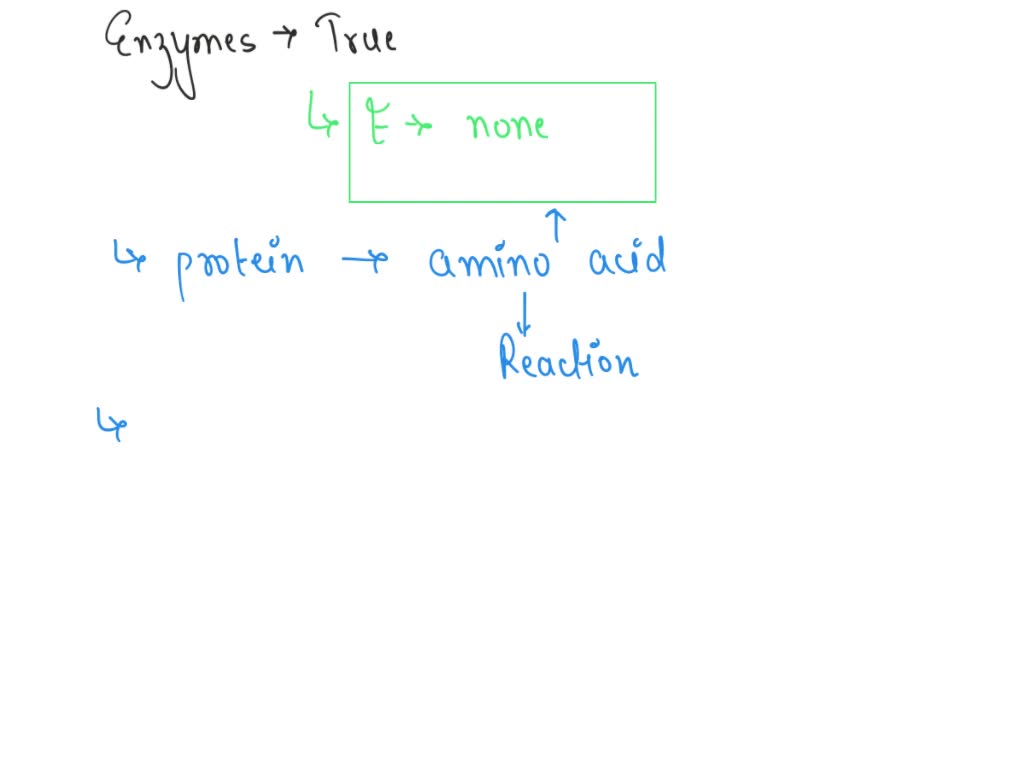 Enzymes → True
↳ E → none
↳ protein → amino acid
Reaction